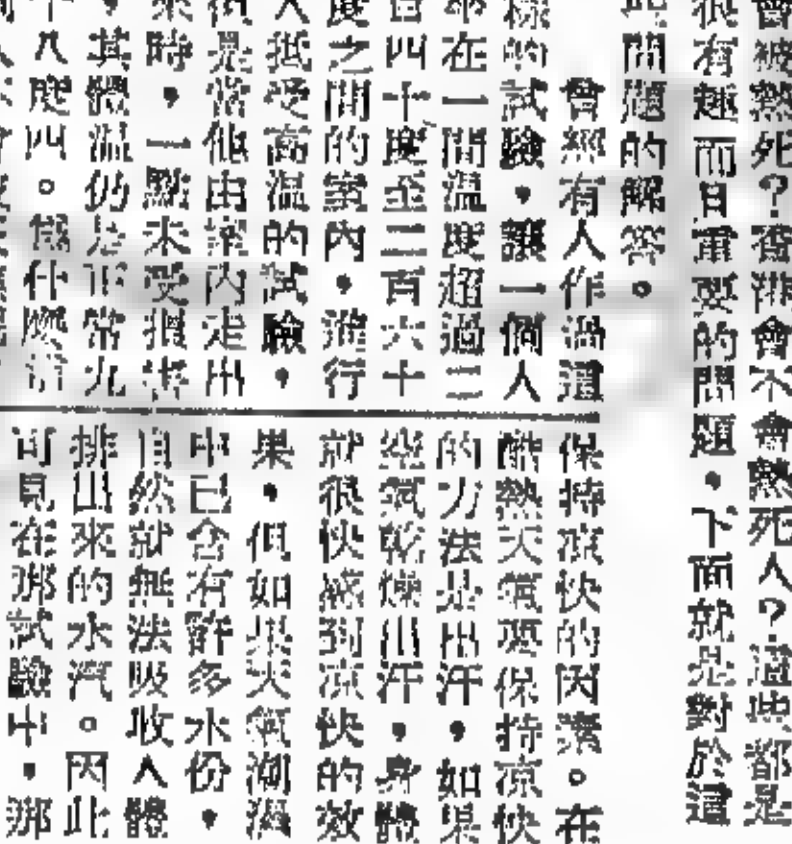 會被熱死?香港會不會熱死人?這些都是
很有趣而且重要的問題,下面就是對於這
此問題的解答。
曾經有人作過這
樣的試驗,讓一個人
在一間溫度超過二
百四十度至二百六十
度之間的室內,進行
人抵受高溫的試驗,
但是當他由室內走出
來時,一點未受損害
,其體溫仍是正常九
十八度四。爲什麼
保持凉快的因素。在
酷熱天氣要保持凉快
的方法是出汗,如果
空氣乾燥出汗,身體
就很快感到凉快的效
果,但如果天氣潮濕
中已含有許多水份,
自然就無法吸收人體
排出來的水汽。因此
可見在那試驗中,那